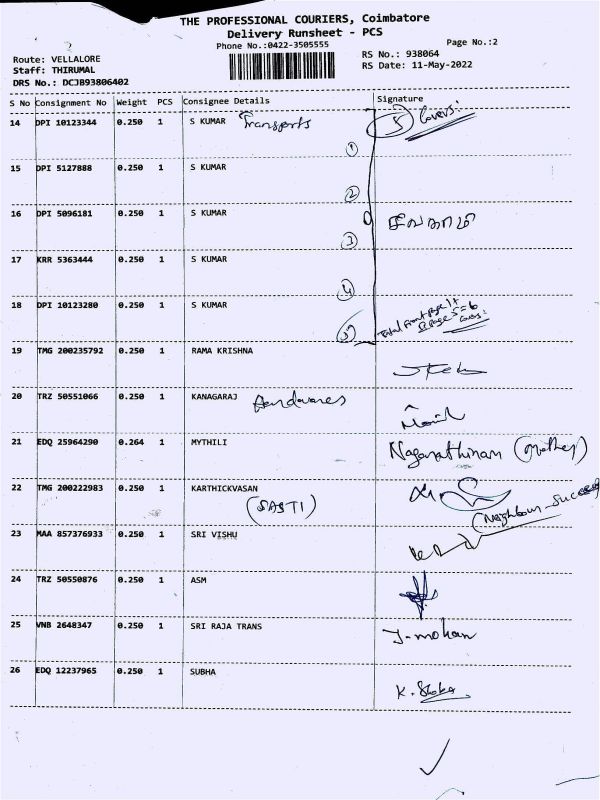 2
THE PROFESSIONAL COURIERS, Coimbatore
Delivery Runsheet - PCS
Phone No.:0422-3505555
Page No.:2
Route: VELLALORE
Staff: THIRUMAL
DRS No.: DCJB93806402
RS No.: 938064
RS Date: 11-May-2022
S No Consignment No Weight PCS Consignee Details Signature
14 DPI 10123344 0.250 1 S KUMAR Transports 5 Covers:
①
15 DPI 5127888 0.250 1 S KUMAR
②
16 DPI 5096181 0.250 1 S KUMAR
③
17 KRR 5363444 0.250 1 S KUMAR
④
18 DPI 10123280 0.250 1 S KUMAR
⑤ Total Front page 1+
page 5=6
Covers:
19 TMG 200235792 0.250 1 RAMA KRISHNA
20 TRZ 50551066 0.250 1 KANAGARAJ
21 EDQ 25964290 0.264 1 MYTHILI Nagarathinam (Mother)
22 TMG 200222983 0.250 1 KARTHICKVASAN
(SASTI) (Neighbour
23 MAA 857376933 0.250 1 SRI VISHU
24 TRZ 50550876 0.250 1 ASM
25 VNB 2648347 0.250 1 SRI RAJA TRANS J-mohan
26 EDQ 12237965 0.250 1 SUBHA